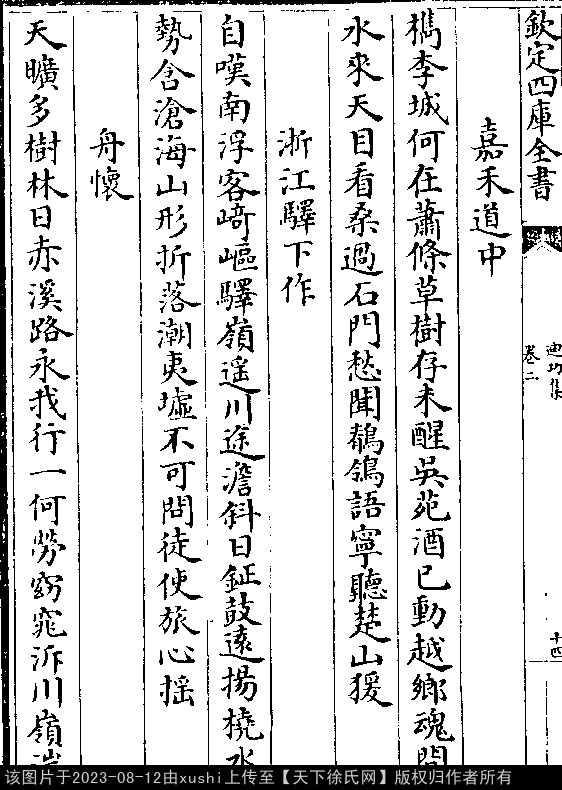 欽定四庫全書
迪功集
卷二
十四
嘉禾道中
檇李城何在蕭條草樹存未醒吳苑酒已動越鄉魂問
水來天目看桑過石門愁聞語寧聽楚山猨
浙江驛下作
自嘆南浮客崎嶇驛嶺遥川途澹斜日鉦鼓遠揚橈水
勢含滄海山形折落潮夷墟不可問徒使旅心揺
舟懷
天曠多樹林日赤溪路永我行一何勞窈窕泝川嶺
该图片于2023-08-12由xushi上传至【天下徐氏网】版权归作者所有